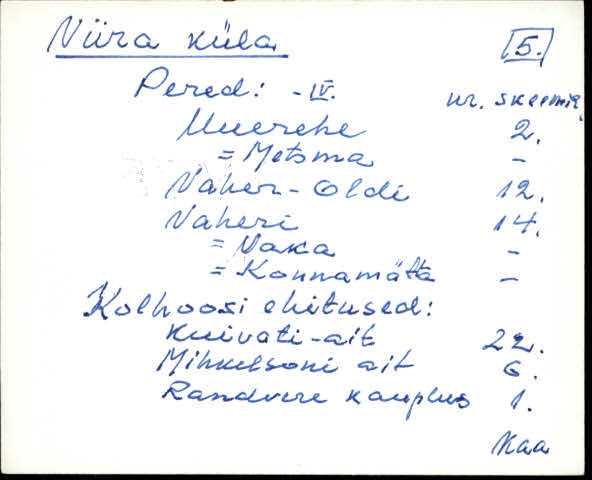 Niira küla 5.
Pered: - IV. nr. skeemil
Uuerehe 2.
= Metsma -
Vaher-Oldi 12.
Vaheri 14.
= Vaka -
= Konnamätta -
Kolhoosi ehitused:
Kuivati-ait 22.
Mihkelsoni ait 6.
Randvere kauplus 1.
Kaa